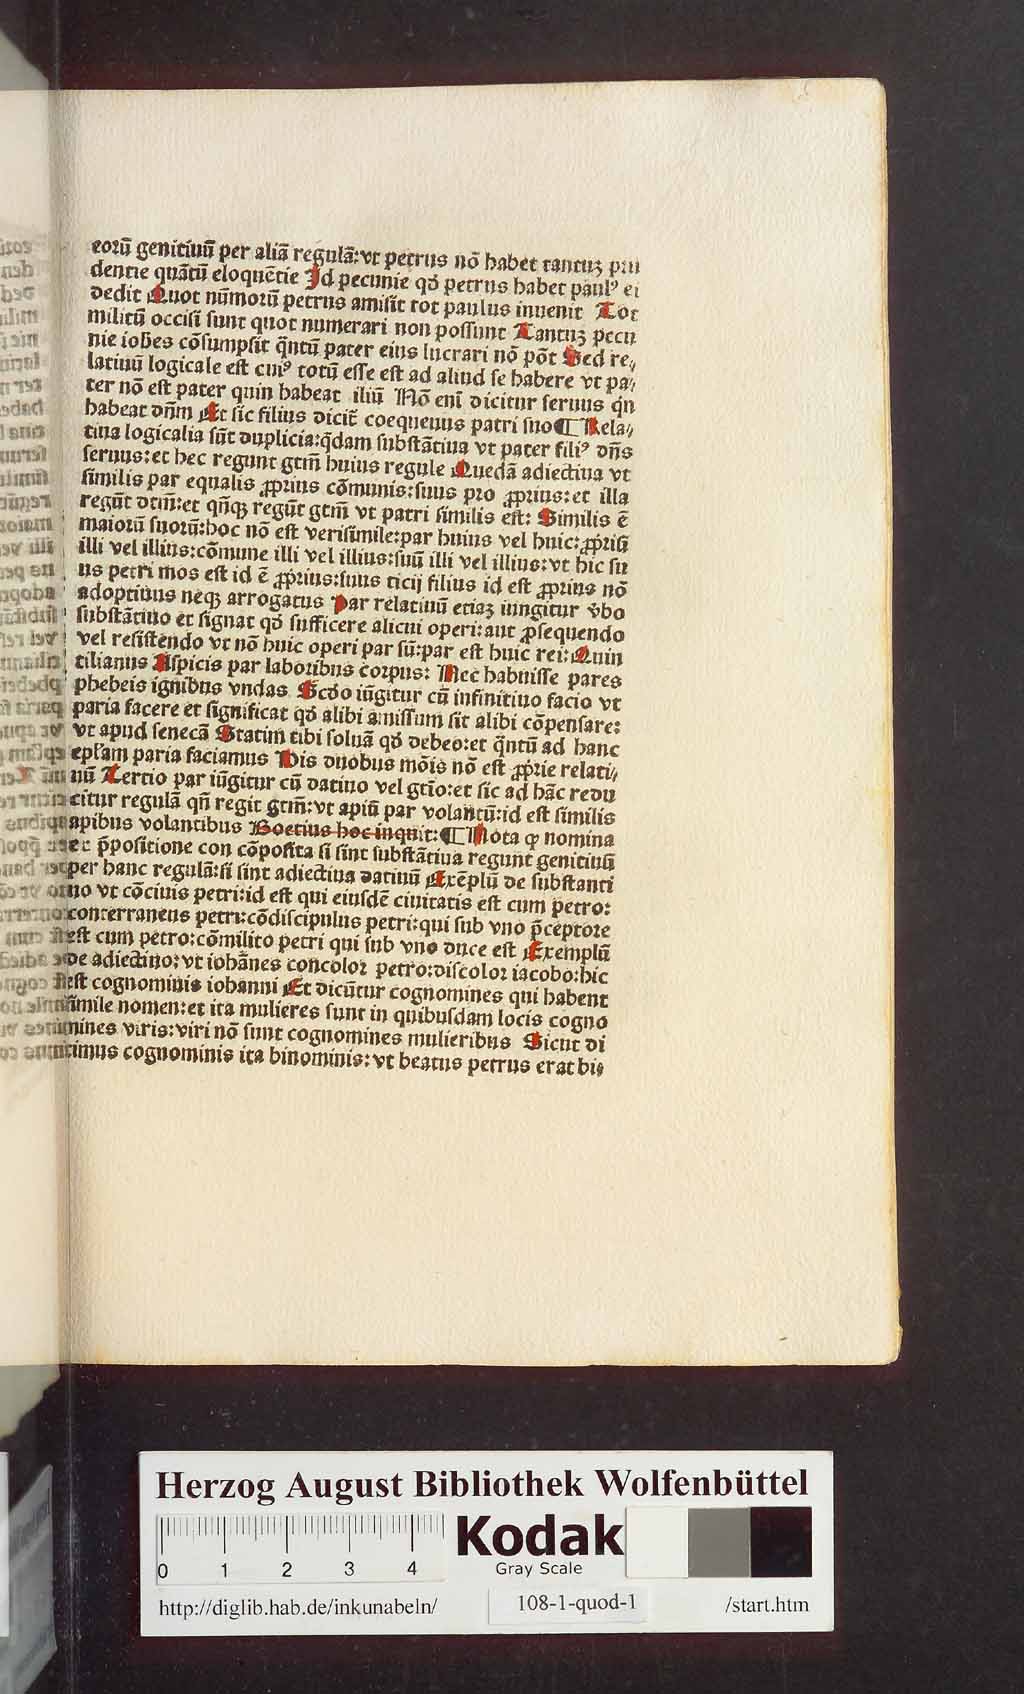 eorū genitiuū per aliā regulā: vt petrus nō habet tantuꝫ pru
dentie quātū eloquētie Id pecunie qđ petrus habet paulꝰ ei
dedit Quot nūmorū petrus amisit tot paulus inuenit Tot
militū occisi sunt quot numerari non possunt Tantuꝫ pecu
nie iobes cōsumpsit q̄ntū pater eius lucrari nō pōt Sed re⸗
latiuū logicale est cuiꝰ totū esse est ad aliud se habere vt pa⸗
ter nō est pater quin habeat iliū Nō enī dicitur seruus q̄n
habeat dn̄m Et sic filius dicit̄ coequeuus patri suo ¶ Rela⸗
tiua logicalia sūt duplicia: q̄dam substātiua vt pater filiꝰ dn̄s
seruus: et hec regunt gtm̄ huius regule Quedā adiectiua vt
similis par equalis ꝓprius cōmunis: suus pro ꝓprius: et illa
regūt dtm̄: et qn̄qꝫ regūt gtm̄ vt patri similis est: Similis ē
maiorū suorū: hoc nō est verisimile: par huius vel huic: ꝓpriū
illi vel illius: cōmune illi vel illius: suū illi vel illius: vt hic su
us petri mos est id ē ꝓprius: suus ticij filius id est ꝓprius nō
adoptiuus neqꝫ arrogatus Par relatiuū etiaꝫ iungitur v̄bo
substātiuo et signat qđ sufficere alicui operi: aut ꝓsequendo
vel resistendo vt nō huic operi par sū: par est huic rei: Quin
tilianus Aspicis par laboribus corpus: Nec habuisse pares
phebeis ignibus vndas Scđo iūgitur cū infinitiuo facio vt
paria facere et significat qđ alibi amissum sit alibi cōpensare:
vt apud senecā Statim tibi soluā qđ debeo: et q̄ntū ad hanc
epl̄am paria faciamus His duobus mōis nō est ꝓprie relati⸗
uū Tertio par iūgitur cū datiuo vel gtīo: et sic ad hāc redu
citur regulā qn̄ regit gtm̄: vt apiū par volantū: id est similis
apibus volantibus Boetius hoc inquit: ¶ Nota ꝙ nomina
ex p̄positione con cōposita si sint substātiua regunt genitiuū
per hanc regulā: si sint adiectiua datiuū Exēplū de substanti
uo vt cōciuis petri: id est qui eiusdē ciuitatis est cum petro:
conterraneus petri: cōdiscipulus petri: qui sub vno p̄ceptore
est cum petro: cōmilito petri qui sub vno duce est Exemplū
de adiectiuo: vt iohānes concolor petro: discolor iacobo: hic
est cognominis iohanni Et dicūtur cognomines qui habent
simile nomen: et ita mulieres sunt in quibusdam locis cogno
mines viris: viri nō sunt cognomines mulieribus Sicut di
cimus cognominis ita binominis: vt beatus petrus erat bi⸗
Herzog August Bibliothek Wolfenbüttel
Kodak
Gray Scale
0 1 2 3 4
http://diglib.hab.de/inkunabeln/ 108-1-quod-1 /start.htm